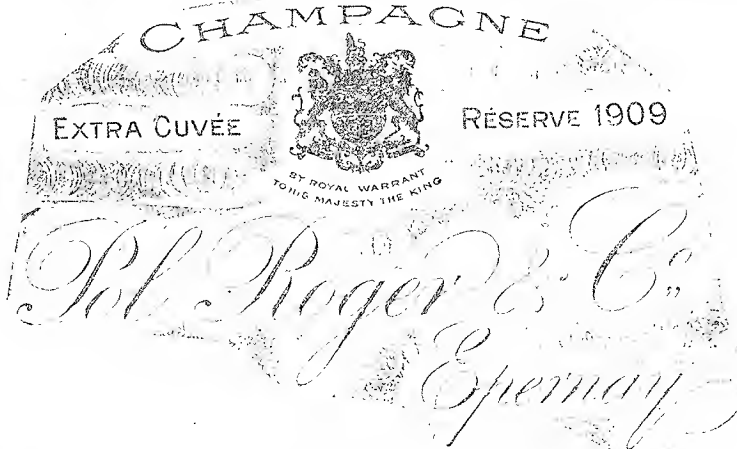 CHAMPAGNE
EXTRA CUVÉE
RÉSERVE 1909
BY ROYAL WARRANT
TO HIS MAJESTY THE KING
Pol Roger & Co.
Epernay